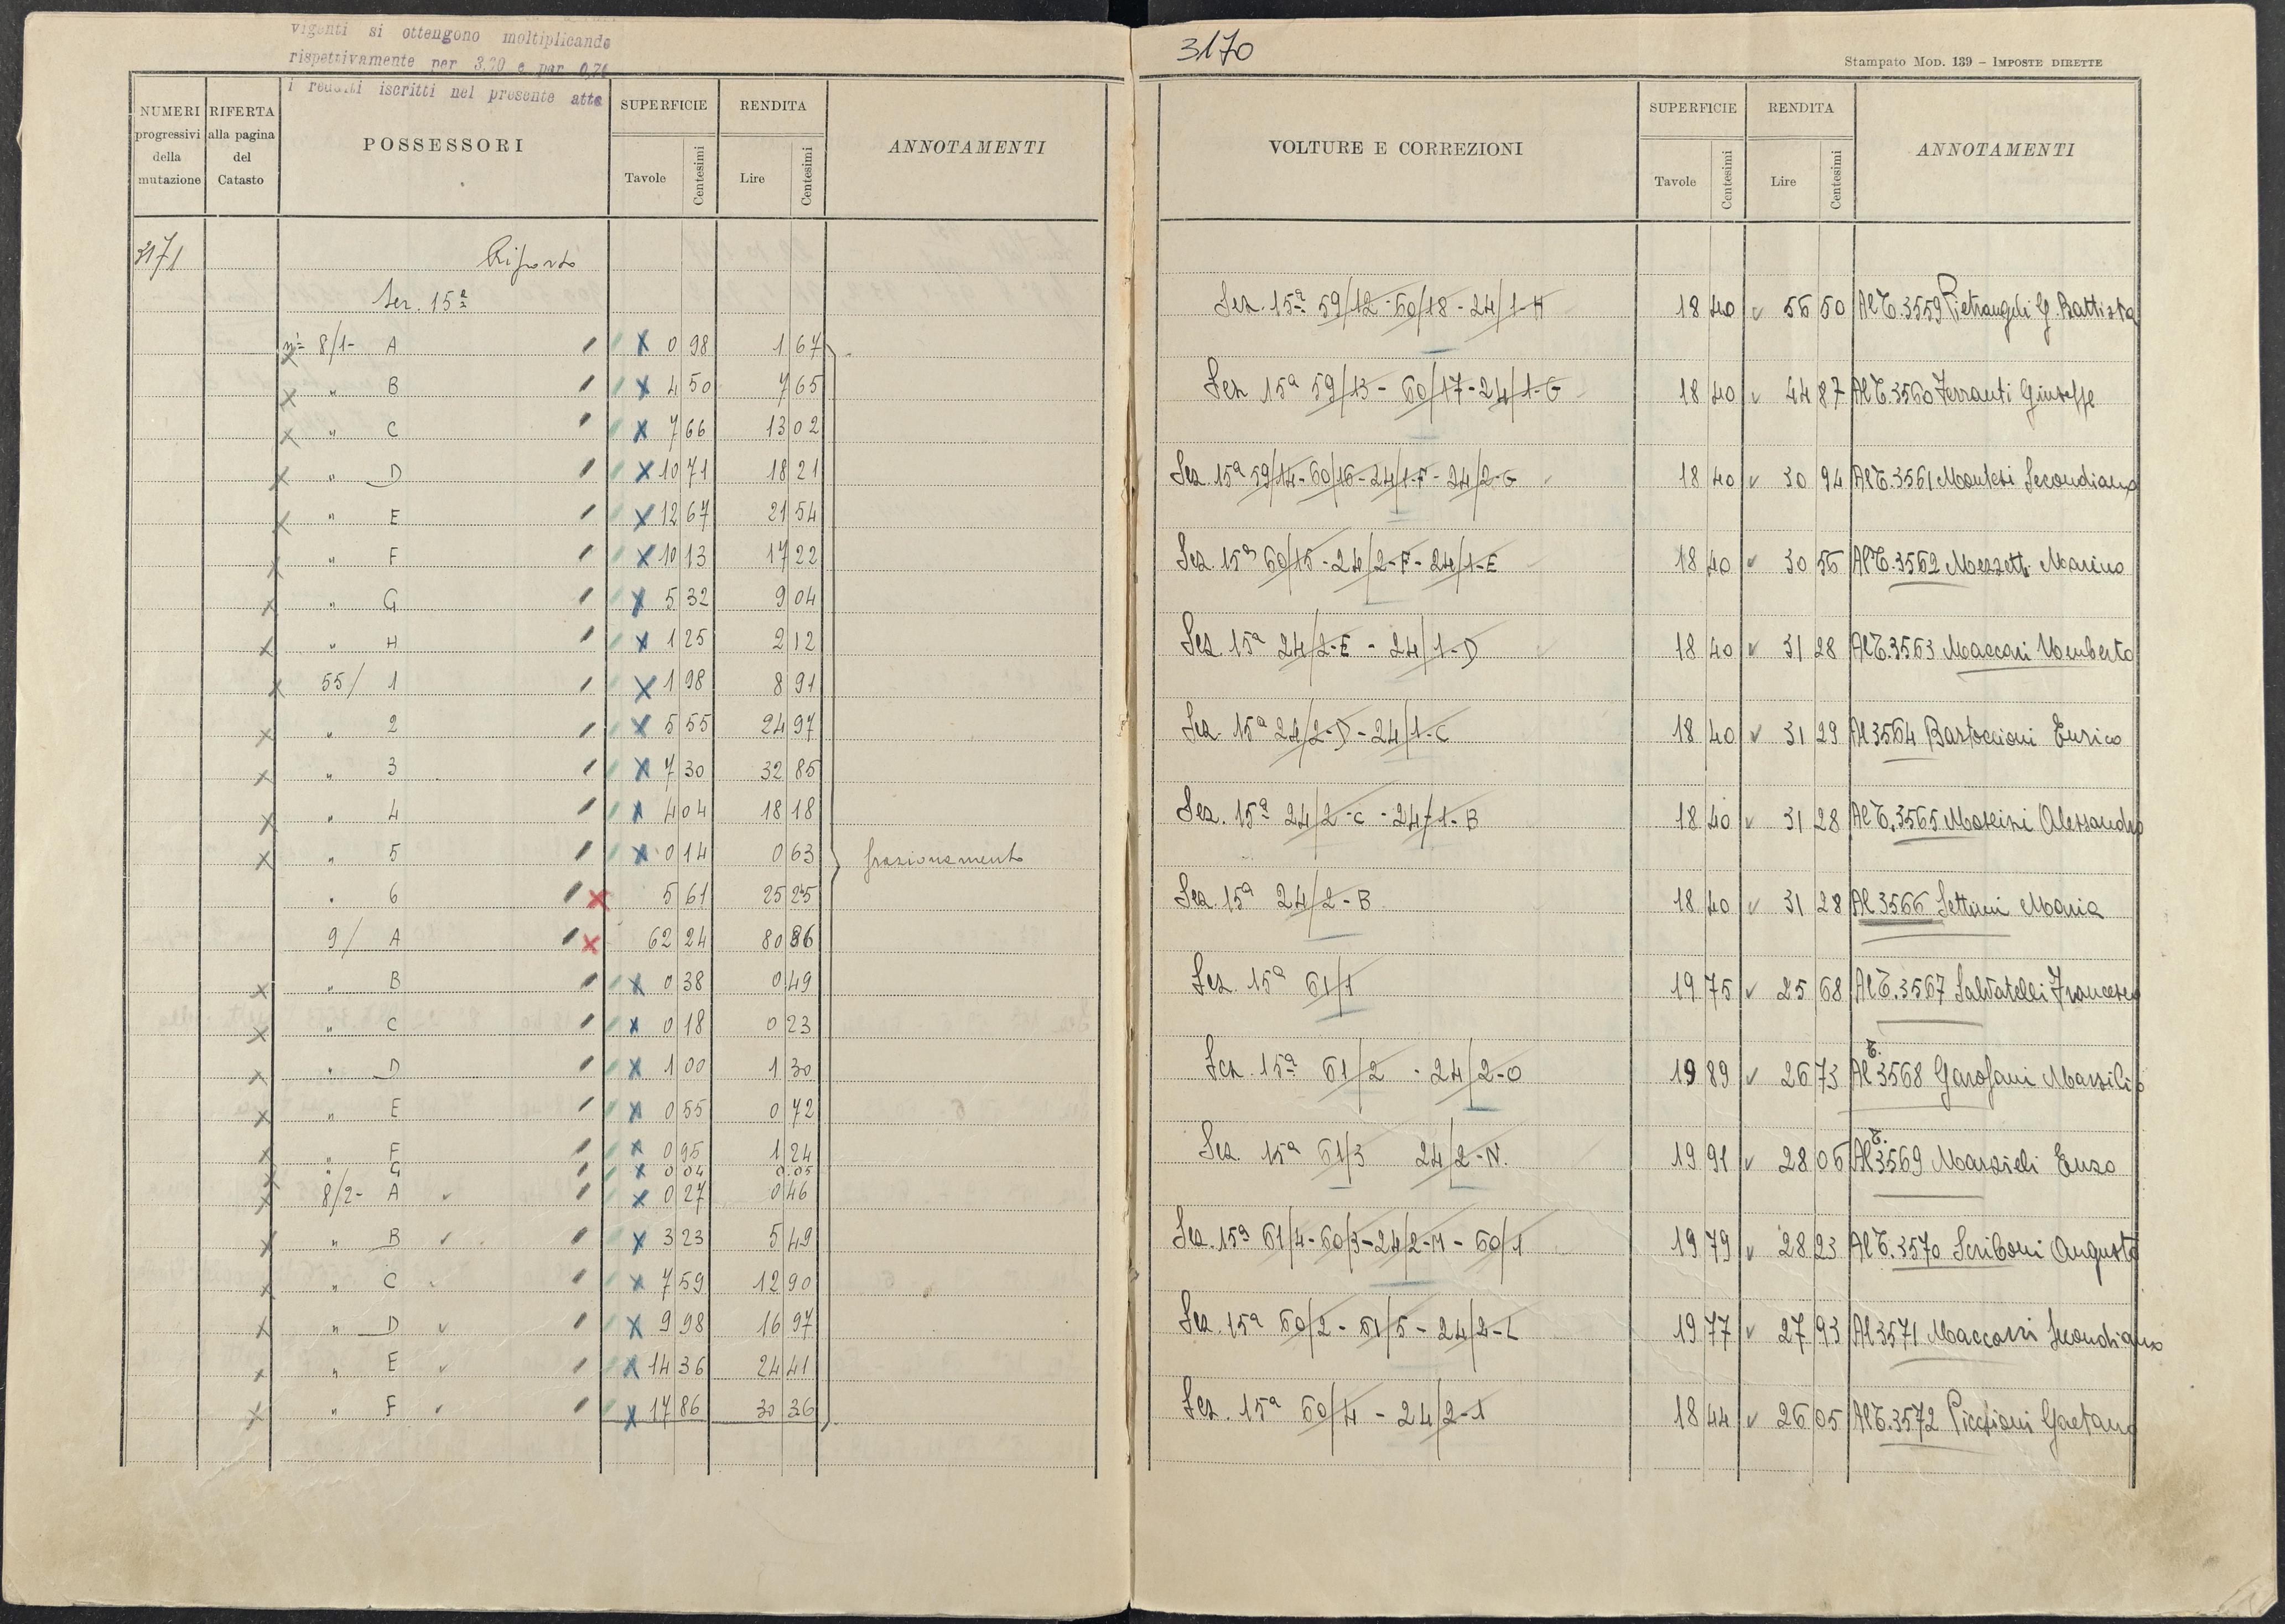 vigenti si ottengono moltiplicando
rispettivamente per 3,20 e per 0,70
i redditi iscritti nel presente atto
NUMERI progressivi della mutazione
RIFERTA alla pagina del Catasto
POSSESSORI
SUPERFICIE
Tavole Centesimi
RENDITA
Lire Centesimi
ANNOTAMENTI
3171 Riporto
Sez. 15ª
nº 8/1- A 0 98 1 67
" B 4 50 7 65
" C 7 66 13 02
" D 10 71 18 21
" E 12 67 21 54
" F 10 13 17 22
" G 5 32 9 04
" H 1 25 2 12
55/ 1 1 98 8 91
" 2 5 55 24 97
" 3 7 30 32 85
" 4 4 04 18 18
" 5 0 14 0 63 frazionamento
" 6 5 61 25 25
9/ A 62 24 80 86
" B 0 38 0 49
" C 0 18 0 23
" D 1 00 1 30
" E 0 55 0 72
" F 0 95 1 24
" G 0 04 0.05
8/2- A 0 27 0 46
" B 3 23 5 49
" C 7 59 12 90
" D 9 98 16 97
" E 14 36 24 41
" F 17 86 30 36
3170
Stampato MOD. 139 – IMPOSTE DIRETTE
VOLTURE E CORREZIONI
SUPERFICIE
Tavole Centesimi
RENDITA
Lire Centesimi
ANNOTAMENTI
Sez. 15ª 59/12-60/18-24/1-H 18 40 56 50 Al T.3559 Pietrangeli G. Battista
Sez 15ª 59/13-60/17-24/1-G 18 40 44 87 Al T.3560 Ferranti Giuseppe
Sez. 15ª 59/14-60/16-24/1-F-24/2-G 18 40 30 94 Al T.3561 Montesi Secondiano
Sez. 15ª 60/15-24/2-F-24/1-E 18 40 30 56 Al T.3562 Mezzetti Marino
Sez. 15ª 24/2-E - 24/1-D 18 40 31 28 Al T.3563 Maccari Umberto
Sez. 15ª 24/2-D-24/1-C 18 40 31 29 Al 3564 Bartoccioni Enrico
Sez. 15ª 24/2-C-24/1-B 18 40 31 28 Al T.3565 Alessandro
Sez. 15ª 24/2-B 18 40 31 28 Al 3566 Maria
Sez. 15ª 61/1 19 75 25 68 Al T.3567 Salvatelli Francesco
Sez. 15ª 61/2 - 24/2-O 19 89 26 73 Al T. 3568 Garofani Marsilio
Sez. 15ª 61/3 24/2-N. 19 91 28 06 Al T. 3569 Marsieli Enzo
Sez. 15ª 61/4-60/3-24/2-M-60/1 19 79 28 23 Al T.3570 Scriboni Augusto
Sez. 15ª 60/2-61/5-24/2-L 19 77 27 93 Al 3571 Maccarri Secondiano
Sez. 15ª 60/4 - 24/2-1 18 44 26 05 Al T.3572 Piccioni Gaetano